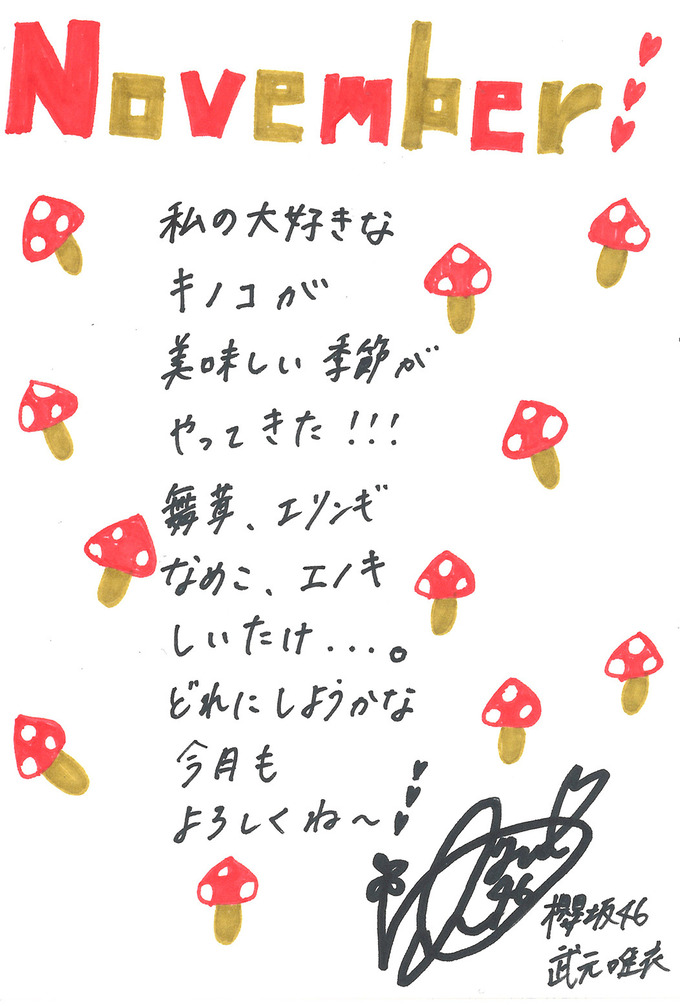 November
私の大好きな
キノコが
美味しい季節が
やってきた!!!
舞茸、エリンギ
なめこ、エノキ
しいたけ...。
どれにしようかな
今月も
よろしくね〜
46
櫻坂46
武元唯衣